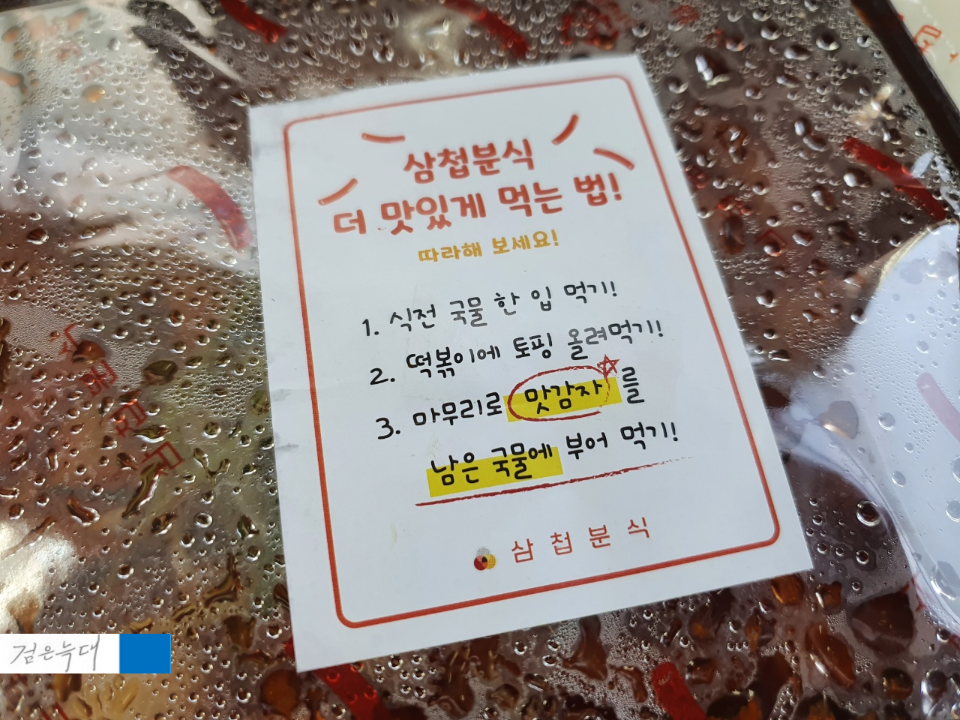 삼첩분식
더 맛있게 먹는 법!
따라해 보세요!
1. 식전 국물 한 입 먹기!
2. 떡볶이에 토핑 올려먹기!
3. 마무리로 맛감자를
남은 국물에 부어 먹기!
삼첩분식
검은늑대